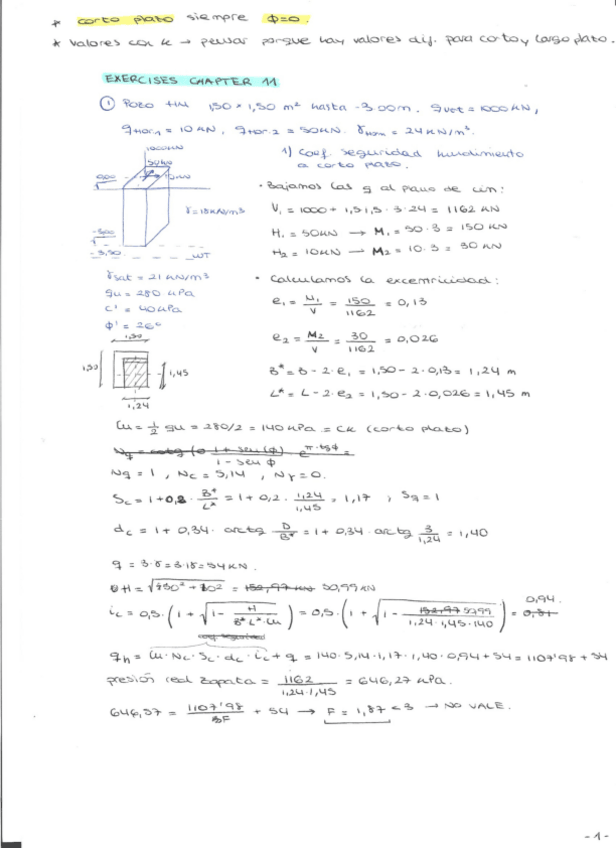 * corto plazo siempre Φ=0.
* valores con k → pensar porque hay valores dif. para corto y largo plazo.
EXERCISES CHAPTER 11
① Pozo HM 1,50 × 1,50 m² hasta -3.00m. qvert = 1000 KN,
qhor,1 = 10 KN, qhor.2 = 50KN. γhorm = 24 KN/m³.
1000KN
50KN
10KN
0,00
γ = 18KN/m3
-3,00
-3,50
WT
γsat = 21 KN/m3
qu = 280 KPa
c' = 40KPa
Φ' = 26º
1) Coef. seguridad hundimiento
a corto plazo.
· Bajamos las q al plano de cim:
V₁ = 1000 + 1,5 1,5 · 3 · 24 = 1162 KN
H₁ = 50KN → M₁ = 50 · 3 = 150 KN
H₂ = 10KN → M₂ = 10 · 3 = 30 KN
· Calculamos la excentricidad:
e₁ = M₁/V = 150/1162 = 0,13
e₂ = M₂/V = 30/1162 = 0,026
B* = B - 2·e₁ = 1,50 - 2·0,13 = 1,24 m
L* = L - 2·e₂ = 1,50 - 2·0,026 = 1,45 m
1,50
1,50
1,45
1,24
Cu = 1/2 qu = 280/2 = 140 KPa = CK (corto plazo)
1 - sen Φ
Nq = 1 , Nc = 5,14 , Nγ = 0.
Sc = 1 + 0,2 · B*/L* = 1 + 0,2 · 1,24/1,45 = 1,17 ; Sq = 1
dc = 1 + 0,34 · arctg D/B* = 1 + 0,34 · arctg 3/1,24 = 1,40
q = 3·γ = 3·18 = 54 KN.
= 50,99 KN
ic = 0,5 · (1 + √(1 - H/(B*·L*·Cu))) = 0,5 · (1 + √(1 - 5099/(1,24·1,45·140))) = 0,94.
qh = Cu · Nc · Sc · dc · ic + q = 140 · 5,14 · 1,17 · 1,40 · 0,94 + 54 = 1107'98 + 54
presión real zapata = 1162/(1,24·1,45) = 646,27 KPa.
646,27 = 1107'98/F + 54 → F = 1,87 < 3 → NO VALE.
- 1 -